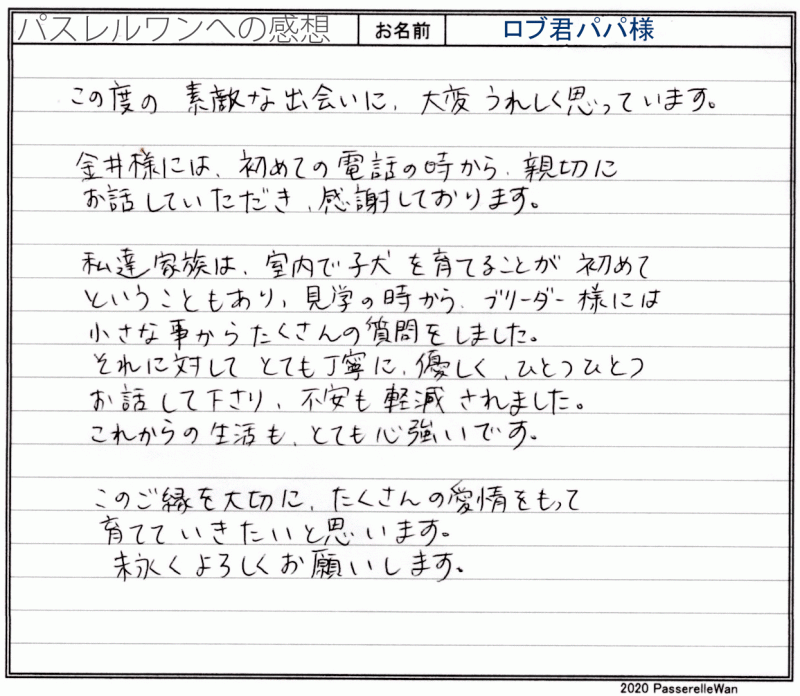 パスレルワンへの感想 お名前 ロブ君パパ様
この度の 素敵な出会いに、大変うれしく思っています。
金井様には、初めての電話の時から、親切に
お話していただき、感謝しております。
私達家族は、室内で子犬を育てることが 初めて
ということもあり、見学の時から、ブリーダー様には
小さな事からたくさんの質問をしました。
それに対して とても丁寧に、優しく、ひとつひとつ
お話して下さり、不安も軽減されました。
これからの生活も、とても心強いです。
このご縁を大切に、たくさんの愛情をもって
育てていきたいと思います。
末永くよろしくお願いします。
2020 PasserelleWan